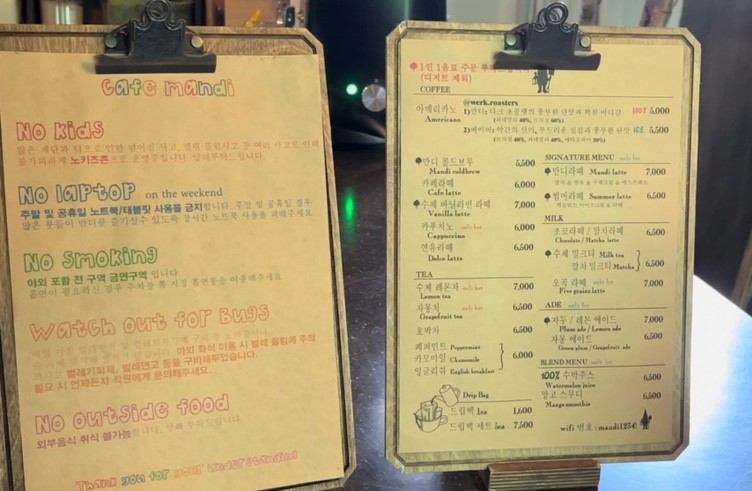 cafe mandi
No kids
노키즈존으로 운영중입니다. 양해부탁드립니다.
No laptop on the weekend
주말 및 공휴일 노트북/태블릿 사용을 금지합니다. 주말 및 공휴일 경우
많은 분들이 만디를 즐기실수 있도록 장시간 노트북 사용을 피해주세요
No smoking
야외 포함 전 구역 금연구역 입니다.
흡연이 필요하신 경우 주차장 쪽 지정 흡연장을 이용해주세요
Watch out for Bugs
야외 좌석 이용 시 벌레 물림에 주의
벌레기피제, 벌레연고 등을 구비해두었습니다.
필요 시 언제든지 직원에게 문의해주세요.
No outside food
외부음식 취식 불가능합니다. 양해 부탁드립니다
Thank you for your understanding
1인 1음료 주문
(디저트 제외)
COFFEE
@werk.roasters
아메리카노 1)만디: 다크 초콜렛의 풍부한 단맛과 묵직 바디감 HOT 5,000
Americano
2)베이비: 약간의 산미, 부드러운 질감과 풍부한 단맛 ICE 5,500
만디 콜드브루 5,500
Mandi coldbrew
카페라떼 6,000
Cafe latte
수제 바닐라빈 라떼 7,000
Vanilla latte
카푸치노 only hot 6,000
Cappuccino
연유라떼 6,500
Dolce latte
TEA
수제 레몬차 only hot 7,000
Lemon tea
자몽차 only hot 6,500
Grapefruit tea
호박차 6,500
페퍼민트 Peppermint
카모마일 Chamomile 6,000
잉글리쉬 English breakfast
Drip Bag
드립백 1ea 1,600
드립백 세트 5ea 7,500
SIGNATURE MENU only Ice
만디라떼 Mandi latte 7,000
썸머라떼 Summer latte 6,500
MILK
초코라떼 / 말차라떼 6,500
Chocolate / Matcha latte
수제 밀크티 Milk tea
말차 밀크티 Matcha 6,500
오곡 라떼 only Ice 7,000
Five grains latte
ADE only Ice
자두 / 레몬 에이드 7,000
Plum ade / Lemon ade
자몽 에이드 6,500
Green plum / Grapefruit ade
BLEND MENU only Ice
100% 수박주스 6,500
Watermelon juice
망고 스무디 6,500
Mango smoothie
wifi 번호 : mandi123@